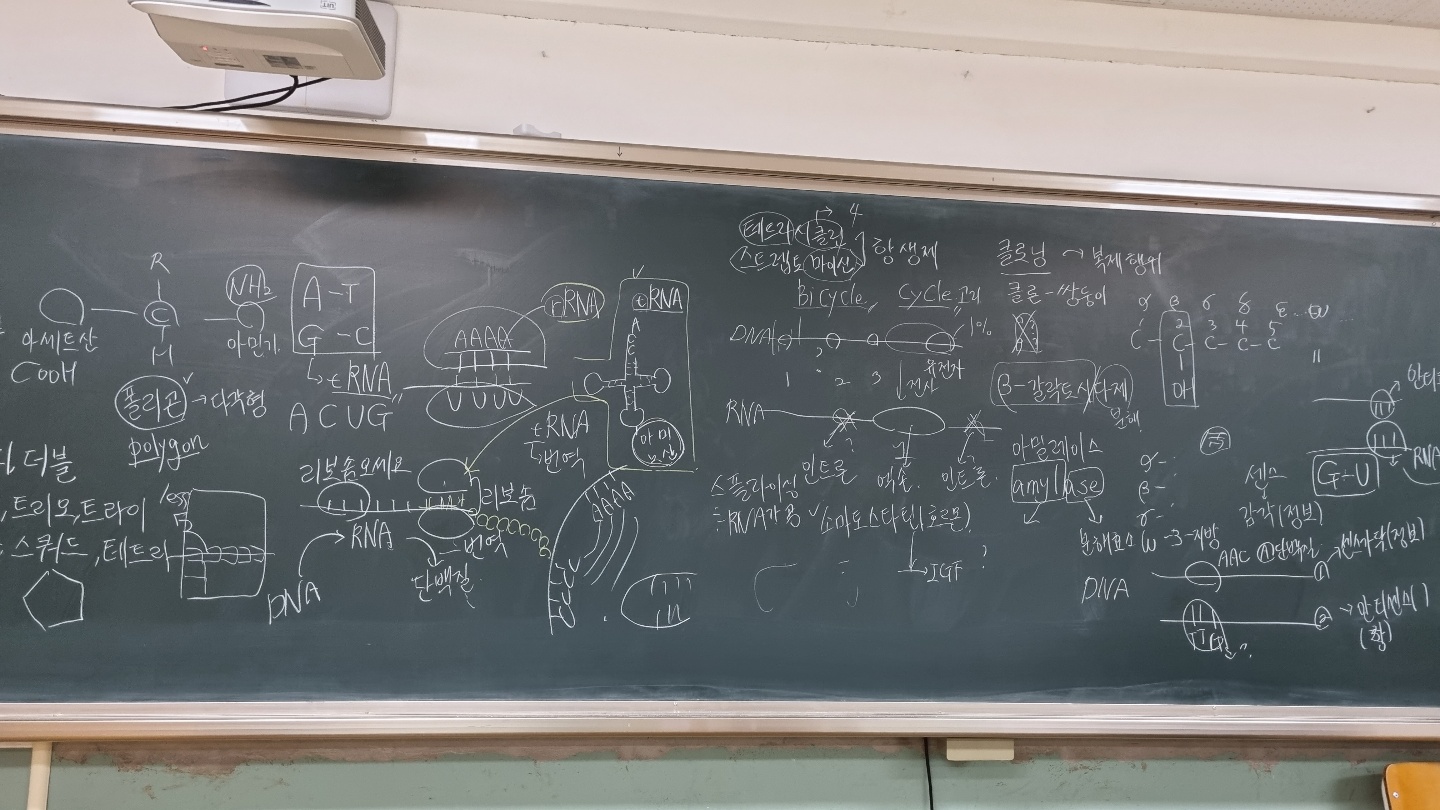 R
C
H
아세트산
COOH
NH₂
아민기
A-T
G-C
tRNA
ACUG
폴리곤 → 다각형
polygon
더블
트리오, 트라이
스쿼드, 테트라
less
리보솜오세요
RNA
DNA
단백질
번역
리보솜
AAAA
UUUU
rRNA
tRNA
A
C
C
아미노산
tRNA
번역
AAAA
UUU
테트라시클린
→ 4
스트렙토마이신
항생제
Bicycle, Cycle 고리
DNA
1%
1 2 3
전사
유전자
RNA
인트론 엑손 인트론
스플라이싱
RNA가공
소마토스타틴(호르몬)
→IGF ?
클로닝 → 복제행위
클론-쌍둥이
α β γ δ ε ... ω
C-C-C-C-C
2 3 4 5
OH
β-갈락토시다제
분해
아밀레이스
amylase
분해효소
α-
β-
γ-
ω-3-지방
센스
감각(정보)
G-U
RNA
DNA
AAC
단백질
센스가닥(정보)
①
TTG
?
② → 안티센스